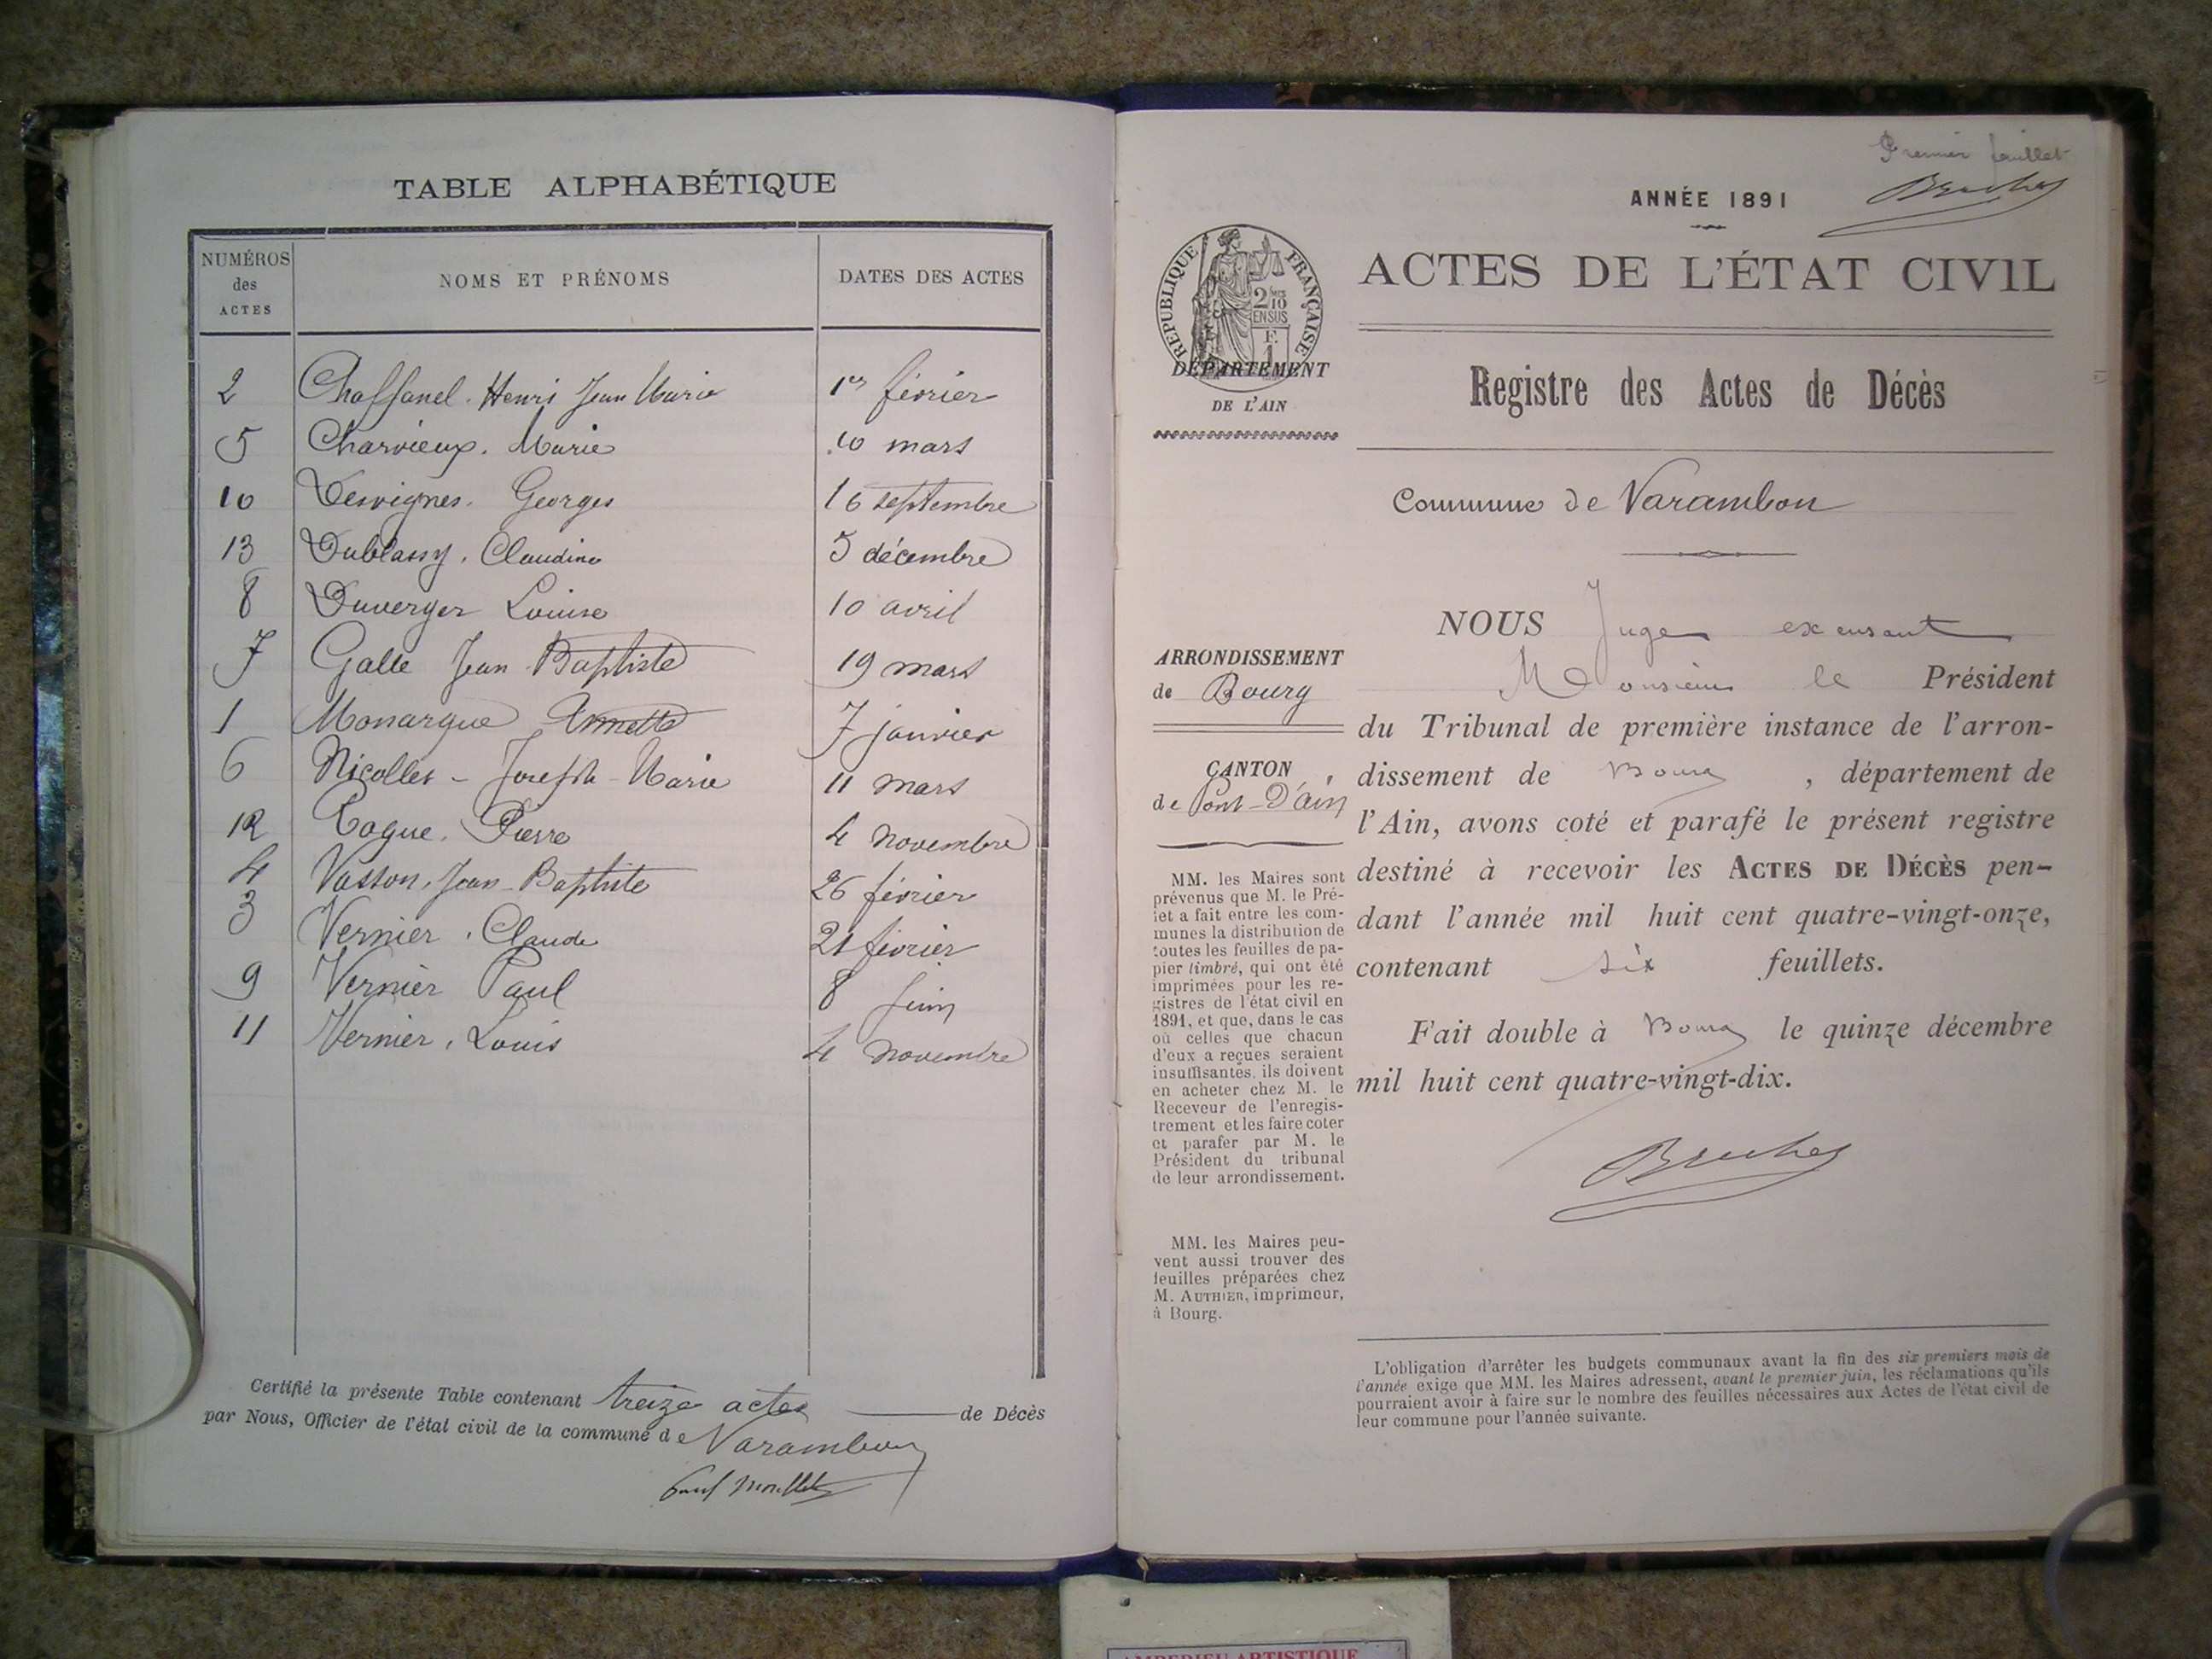 TABLE ALPHABÉTIQUE
NUMÉROS des ACTES
NOMS ET PRÉNOMS
DATES DES ACTES
2 Chaffanel. Henri Jean Marie 1er février
5 Charvieux. Marie 10 mars
10 Desvignes. Georges 16 septembre
13 Dublassy. Claudine 5 décembre
8 Duverger Louise 10 avril
7 Galle Jean-Baptiste 19 mars
1 Monarque Annette 7 janvier
6 Nicollet - Joseph-Marie 11 mars
12 Togue. Pierre 4 novembre
4 Vasson. Jean-Baptiste 26 février
3 Vernier. Claude 21 février
9 Vernier Paul 8 juin
11 Vernier. Louis 4 novembre
Certifié la présente Table contenant treize actes de Décès
par Nous, Officier de l'état civil de la commune de Varambon
Premier feuillet
ANNÉE 1891
ACTES DE L'ÉTAT CIVIL
RÉPUBLIQUE FRANÇAISE
2/10
EN SUS
F.
1
DÉPARTEMENT
DE L'AIN
Registre des Actes de Décès
Commune de Varambon
ARRONDISSEMENT
de Bourg
CANTON
de Pont-D'ain
MM. les Maires sont
prévenus que M. le Pré-
fet a fait entre les com-
munes la distribution de
toutes les feuilles de pa-
pier timbré, qui ont été
imprimées pour les re-
gistres de l'état civil en
1891, et que, dans le cas
où celles que chacun
d'eux a reçues seraient
insuffisantes, ils doivent
en acheter chez M. le
Receveur de l'enregis-
trement et les faire coter
et parafer par M. le
Président du tribunal
de leur arrondissement.
MM. les Maires peu-
vent aussi trouver des
feuilles préparées chez
M. AUTHIER, imprimeur,
à Bourg.
NOUS Juge excusant
Monsieur le Président
du Tribunal de première instance de l'arron-
dissement de Bourg, département de
l'Ain, avons coté et parafé le présent registre
destiné à recevoir les ACTES DE DÉCÈS pen-
dant l'année mil huit cent quatre-vingt-onze,
contenant six feuillets.
Fait double à Bourg le quinze décembre
mil huit cent quatre-vingt-dix.
L'obligation d'arrêter les budgets communaux avant la fin des six premiers mois de
l'année exige que MM. les Maires adressent, avant le premier juin, les réclamations qu'ils
pourraient avoir à faire sur le nombre des feuilles nécessaires aux Actes de l'état civil de
leur commune pour l'année suivante.